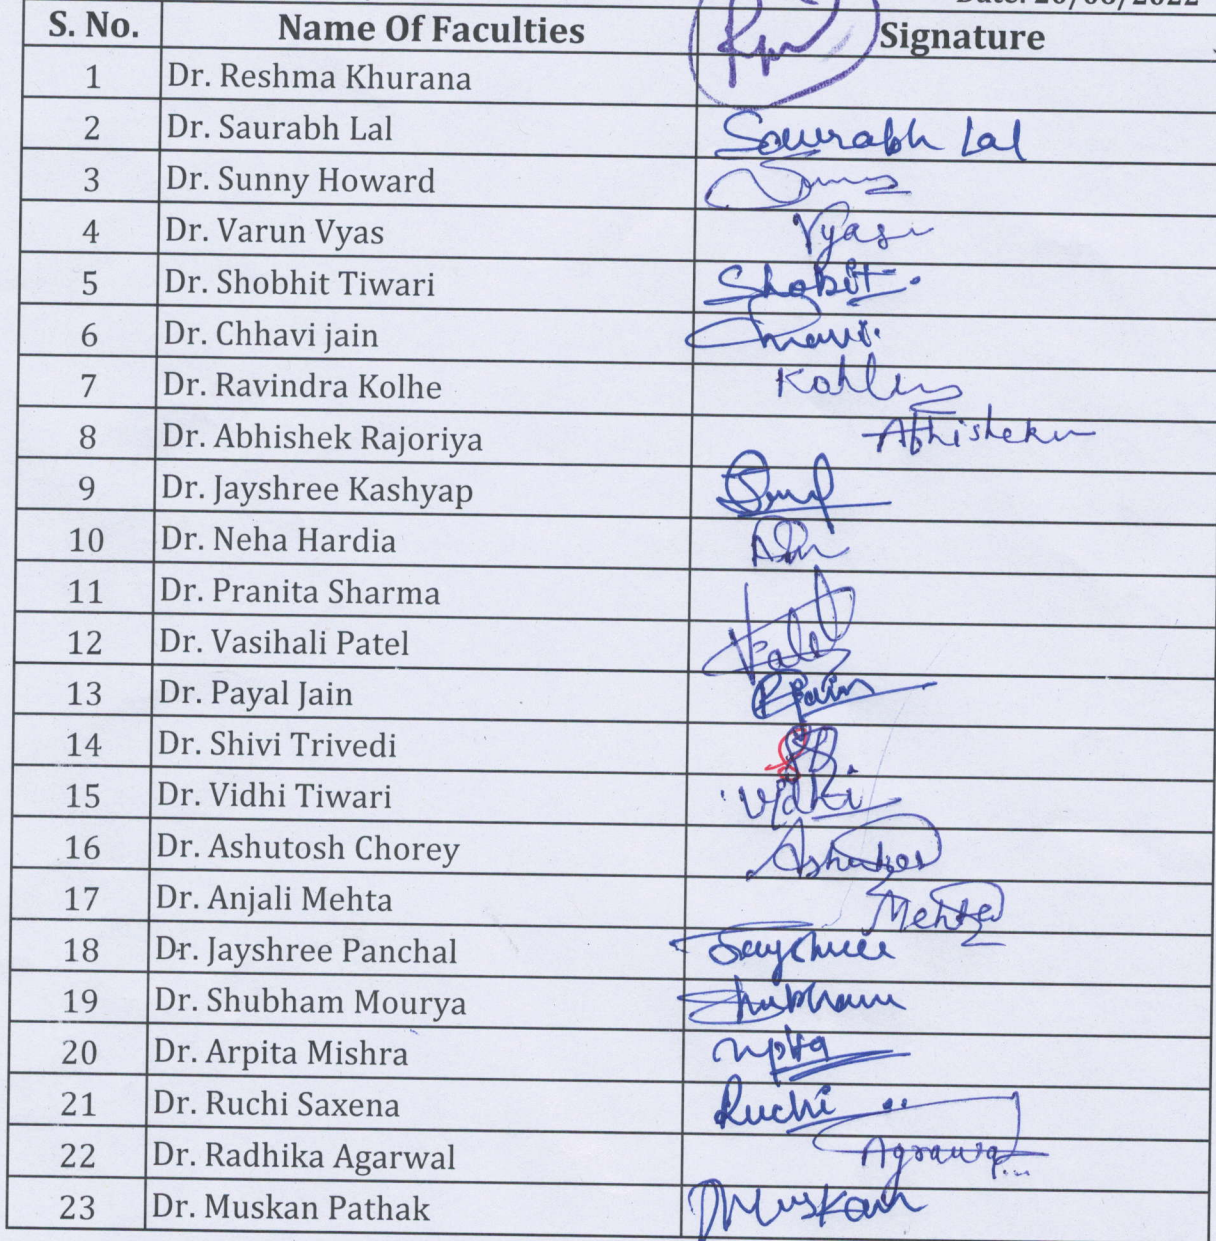 Date: 20/06/2022
S. No. Name Of Faculties Signature
1 Dr. Reshma Khurana
2 Dr. Saurabh Lal Saurabh Lal
3 Dr. Sunny Howard
4 Dr. Varun Vyas Vyas
5 Dr. Shobhit Tiwari Shobit
6 Dr. Chhavi jain
7 Dr. Ravindra Kolhe
8 Dr. Abhishek Rajoriya Abhishek
9 Dr. Jayshree Kashyap
10 Dr. Neha Hardia
11 Dr. Pranita Sharma
12 Dr. Vasihali Patel
13 Dr. Payal Jain PJain
14 Dr. Shivi Trivedi
15 Dr. Vidhi Tiwari Vidhi
16 Dr. Ashutosh Chorey
17 Dr. Anjali Mehta Mehta
18 Dr. Jayshree Panchal Jayshree
19 Dr. Shubham Mourya Shubham
20 Dr. Arpita Mishra
21 Dr. Ruchi Saxena Ruchi
22 Dr. Radhika Agarwal
23 Dr. Muskan Pathak Muskan